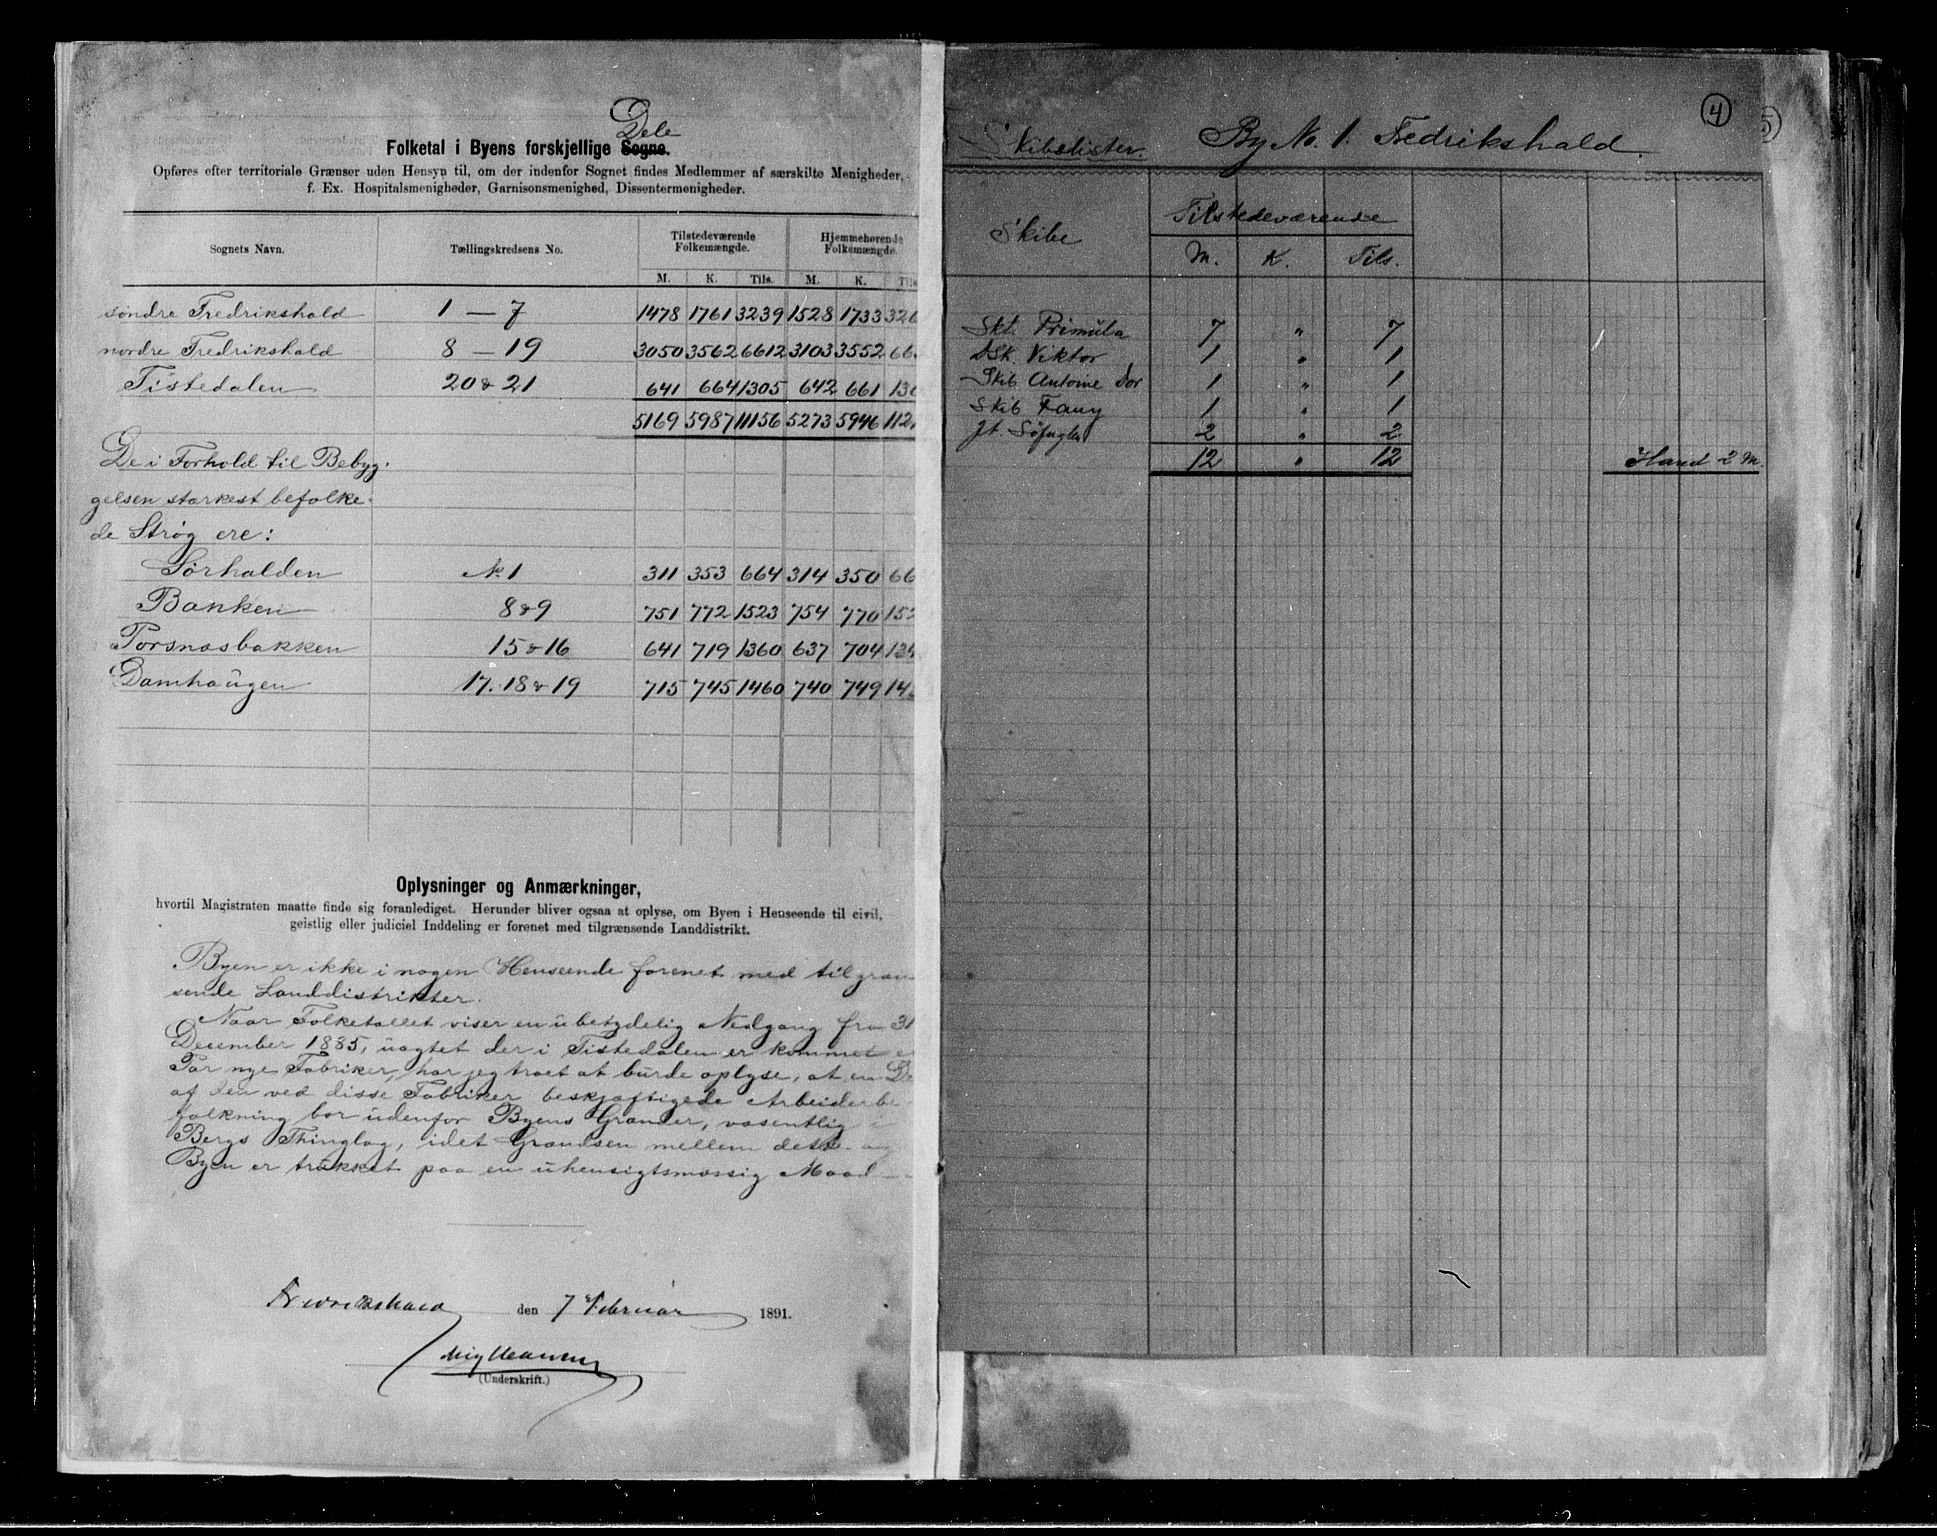 Dele
Folketal i Byens forskjellige Sogne.
Opføres efter territoriale Grænser uden Hensyn til, om der indenfor Sognet findes Medlemmer af særskilte Menigheder,
f. Ex. Hospitalsmenigheder, Garnisonsmenighed, Dissentermenigheder.
Sognets Navn. Tællingskredsens No. Tilstedeværende Folkemængde. Hjemmehørende Folkemængde.
M. K. Tils. M. K. Tils
søndre Fredrikshald 1 — 7 1478 1761 3239 1528 1733 326
nordre Fredrikshald 8 — 19 3050 3562 6612 3103 3552 66
Tistedalen 20 & 21 641 664 1305 642 661 130
5169 5987 11156 5273 5946 112
De i Forhold til Bebyg-
gelsen stærkest befolke-
de Strøg ere:
Sørhalden No 1 311 353 664 314 350 66
Banken 8 & 9 751 772 1523 754 770 152
Porsnæsbakken 15 & 16 641 719 1360 637 704 134
Damhaugen 17. 18 & 19 715 745 1460 740 749 14
Oplysninger og Anmærkninger,
hvortil Magistraten maatte finde sig foranlediget. Herunder bliver ogsaa at oplyse, om Byen i Henseende til civil,
geistlig eller judiciel Inddeling er forenet med tilgrænsende Landdistrikt.
Byen er ikke i nogen Henseende forenet med tilgræn
sende Landdistrikter.
Naar Folketallet viser en ubetydelig Nedgang fra 31
December 1885, uagtet der i Tistedalen er kommet
Par nye Fabriker, har jeg troet at burde oplyse, at en De
af den ved disse Fabriker beskjæftigede Arbeiderbe
folkning bor udenfor Byens Grændser, væsentlig i
Bergs Thinglag, idet Grændsen mellem dette og
Byen er trukket paa en uhensigtsmæssig Maade
Fredrikshald den 7 Februar 1891.
(Underskrift.)
4
5)
Skibslister. By No. 1. Fredrikshald.
Skibe Tilstedeværende
M. K. Tils.
Skt. Primula 7 " 7
DSk. Viktor 1 " 1
Skib Antoine Dor 1 " 1
Skib Fany 1 " 1
Jt. Søfuglen 2 " 2
12 " 12 Iland 2 M.